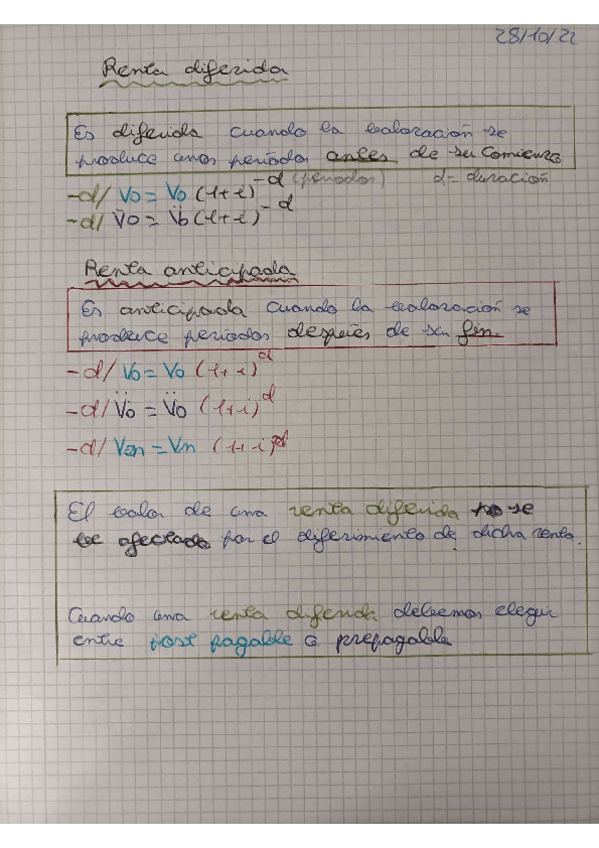 28/10/22
Renta diferida
Es diferida cuando la valoración se
produce unos períodos antes de su comienzo
-d/ V₀ = V₀ (1+i)^-d (periodos) d = duración
-d/ V̈₀ = V̈₀ (1+i)^-d
Renta anticipada
Es anticipada cuando la valoración se
produce períodos después de su fin.
-d/ V₀ = V₀ (1+i)^d
-d/ V̈₀ = V̈₀ (1+i)^d
-d/ Vn = Vn (1+i)^d
El valor de una renta diferida no se
ve afectado por el diferimiento de dicha renta.
Cuando una renta diferida debemos elegir
entre post pagable o prepagable